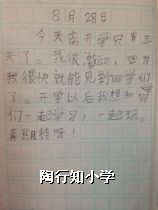 8月28日
今天离开学只有三
天了。我很激动，因为
我很快就能见到同学们
了。开学以后我想和同学
们一起学习，一起玩。
真期待呀！
陶行知小学